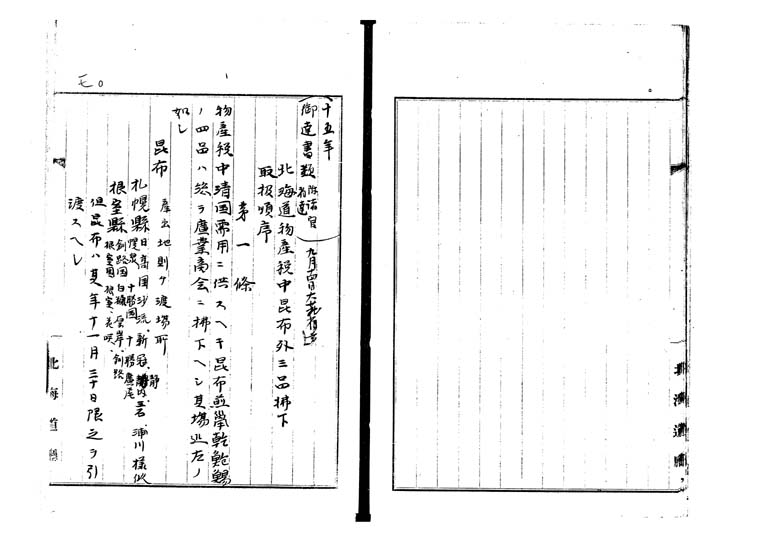 七。
十五年
御達書類 除諸官省達 九月 日大蔵省達
北海道物産税中昆布外三品拂下
取扱順序
第一條
物産税中清国需用ニ供スヘキ昆布煎海鼠乾鮑鯣
ノ四品ハ悉ク廣業商会ニ拂下ヘシ其場処左ノ
如シ
昆布 産出地則チ渡場所
札幌縣 日高国沙流、新冠、静内、三石、浦川、様似
幌泉 十勝国 十勝 廣尾
根室縣 釧路国 白糠 厚岸、釧路
根室国 根室、花咲、
但昆布ハ其年十一月三十日限之ヲ引
渡スヘシ
北海道廳
北海道廳